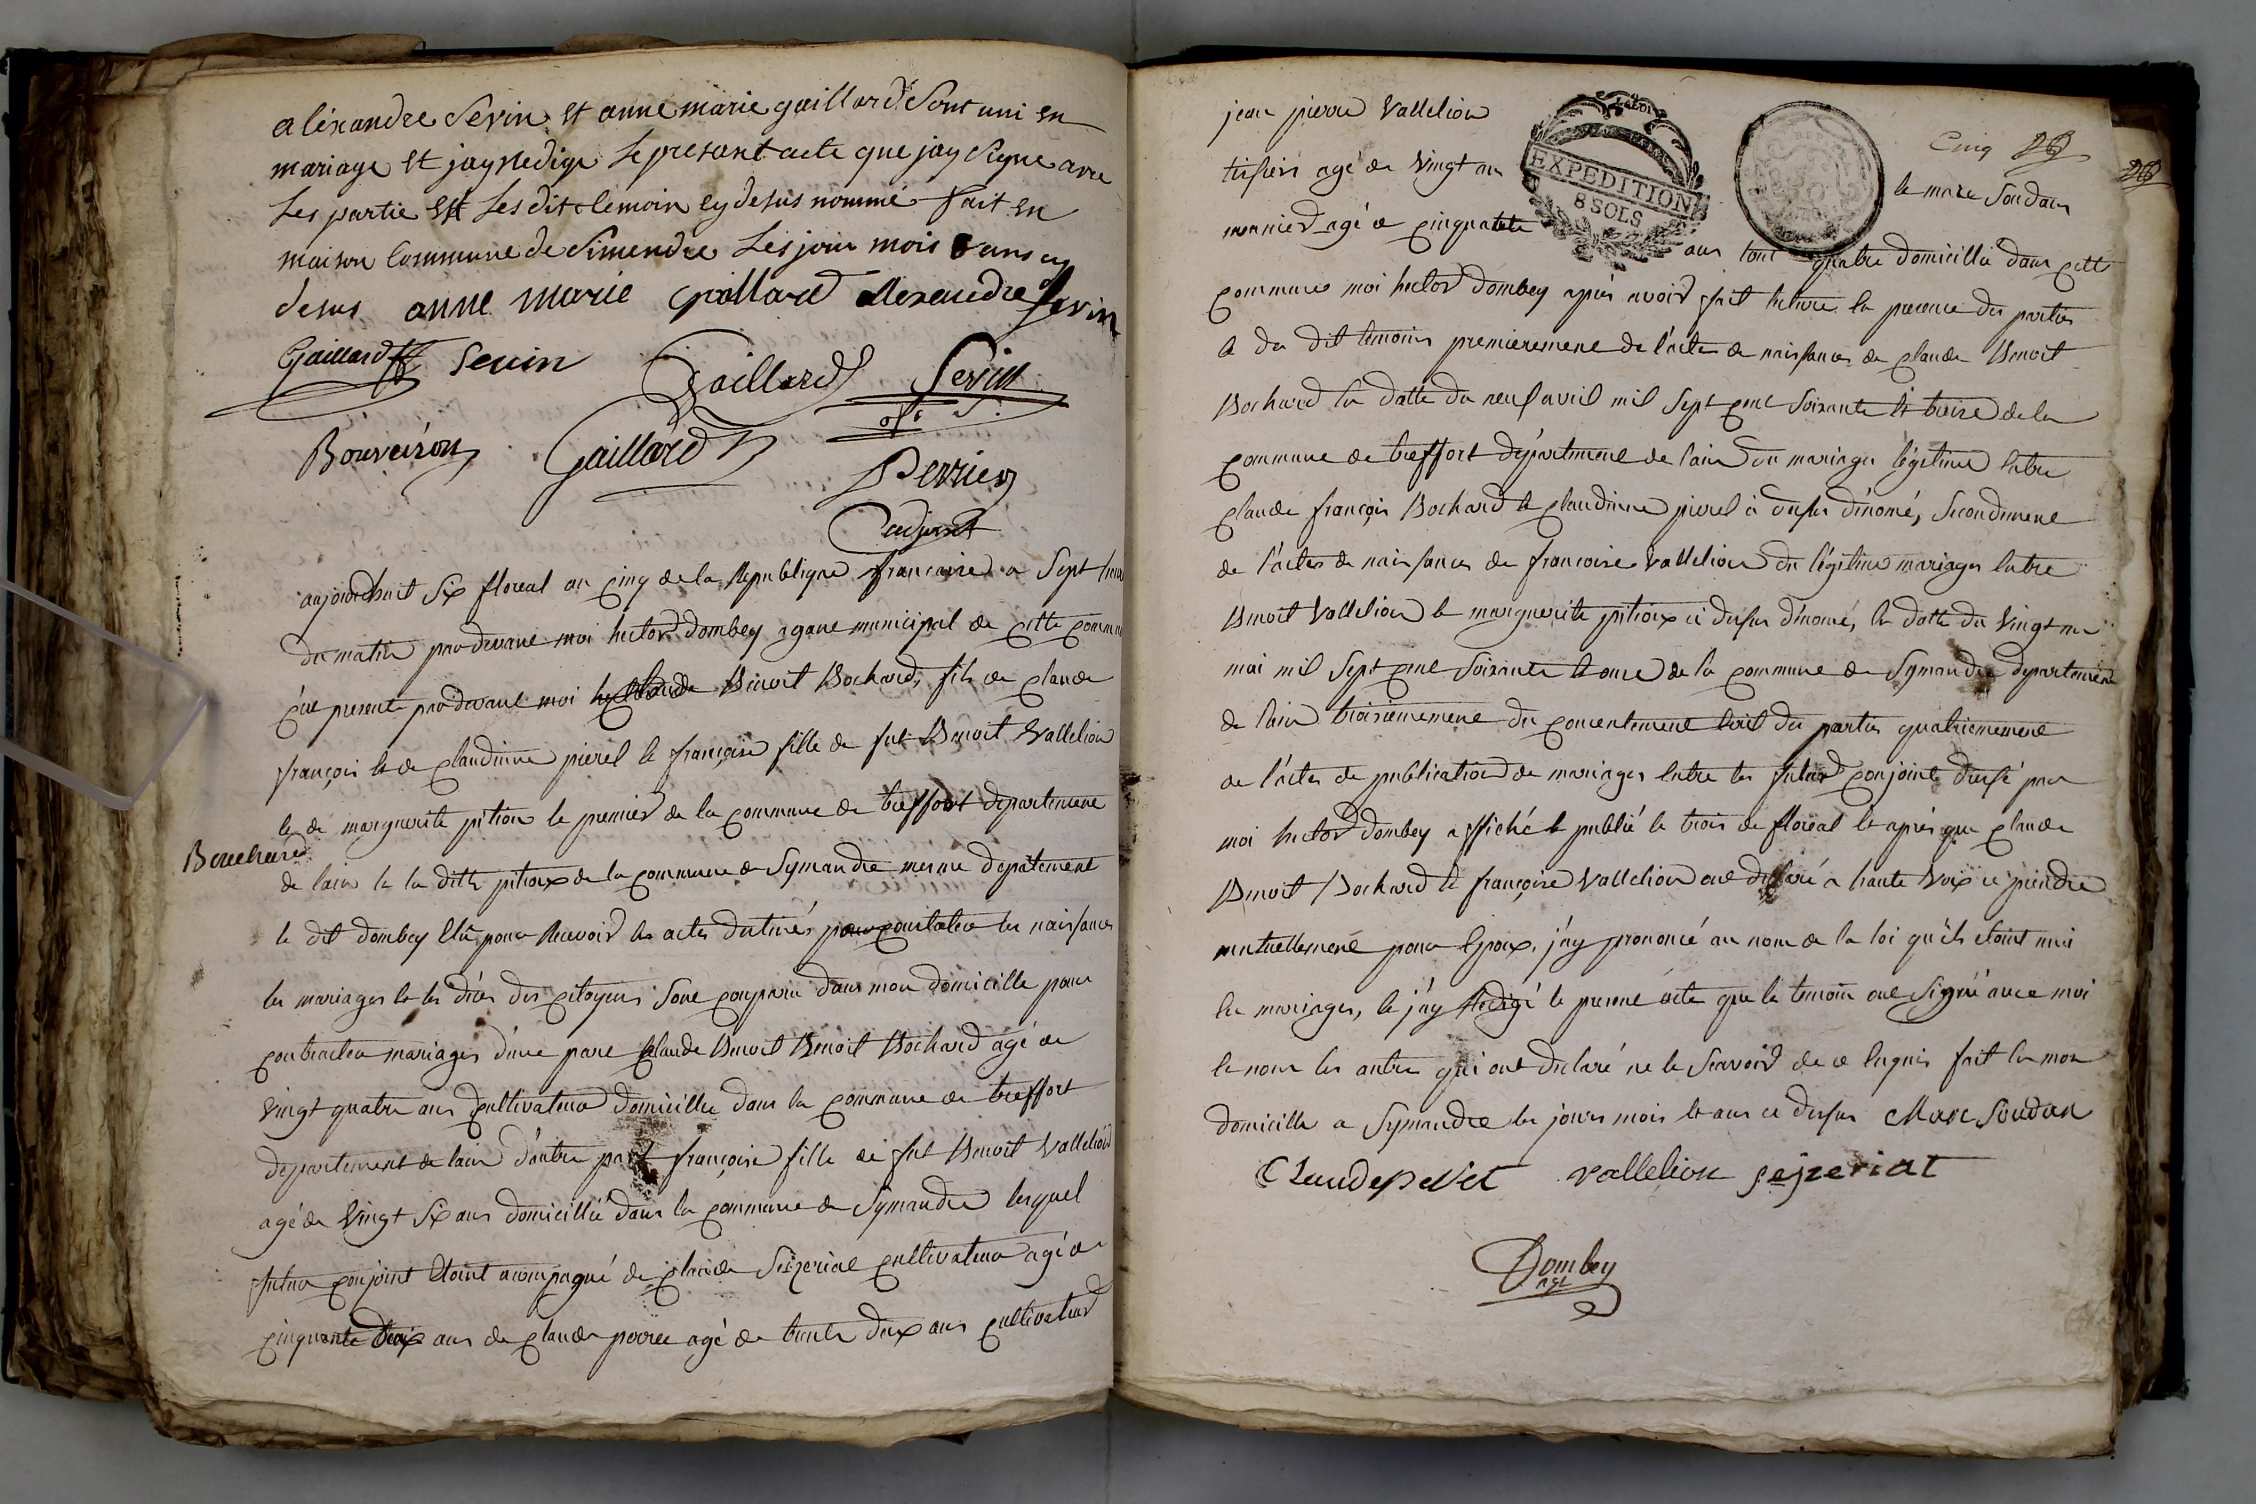 alexandre Sevin et anne marie gaillard Sont uni en
mariage et jay redige le presant acte que jay Signe avec
Les partie est Lesdit temoin cy desus nommé fait en
maison Commune de Simendre Les jour mois et ans cy
desus anne marie gaillard alexandre Sevin
Gaillard Sevin Gaillard Sevin
Bouveiron Gaillard
Perrier
adjoint
aujourdhuit Six floreal an cinq de la Republique francaise a Sept heure
du matin pardevant moi hector dombey agant municipal de cette commune
présente pardevant moi Claude Benoit Bochard, fils de claude
françois et de claudinne pierel et françoise fille de fut Benoit Vallelion
et de marguerite pitiou le premier de la commune de treffort departement
Bouchard
de lain et la ditte pitioux de la commune de Symandre mesme departement
le dit dombey Elû pour Recevoir les actes destinés pour constater les naissances
les mariages et les décés des citoyens Sont comparu dans mon domicille pour
contracter mariages d'une part Claude Benoit Benoit Bochard agé de
vingt quatre ans cultivateur domicillié dans la commune de treffort
departement de lain d'autre part françoise fille de fut Benoit Vallelion
agé de vingt Six ans domicillié dans la commune de Symandre lesquel
futur conjoint étoint acompagné de claude Seizeriat cultivateur agé de
cinquante ans de claude agé de trente deux ans cultivateur
jean pierre Vallelion
tissiers agé de vingt an
EXPEDITION
8 SOLS
Cinq
et marc Soudan
meunier agé de cinquante
ans tout quatre domicillié dans cette
commune moi hector dombey après avoir fait lecture en presence des parties
& du dit temoins premierement de l'actes de naissances de claude Benoit
Bochard en datte du neuf avril mil Sept cent Soixante et treize de la
commune de treffort département de lain du mariages légitime entre
claude françois Bochard et claudinne pierel ci dessu dénomé, Secondement
de l'actes de naissances de francoise Vallelion du légitime mariages entre
Benoit Vallelion et marguerite pitioux ci dessu dénomé, en datte du Vingt
mai mil Sept cent Soixante et onze de la commune de Symandre departement
de lain troisiemement du concentement des parties quatriemement
de l'actes de publication de mariages entre les futurs conjoints dressé par
moi hector dombey affiché et publié le trois de floréal et après que claude
Benoit Bochard et françoise Vallelion ont déclaré a haute voix ce prendre
mutuellement pour Epoux, j'ay prononcé au nom de la loi qu'ils étoint uni
en mariages, et j'ay Redigé le present acte que les temoin ont Signéé avec moi
et non les autres qui ont declaré ne le Scavoir de ce enquis fait en mon
domicille a Symandre les jours mois et ans ci dessus Marc Soudan
Claude vallelion seizeriat
Dombey
agt